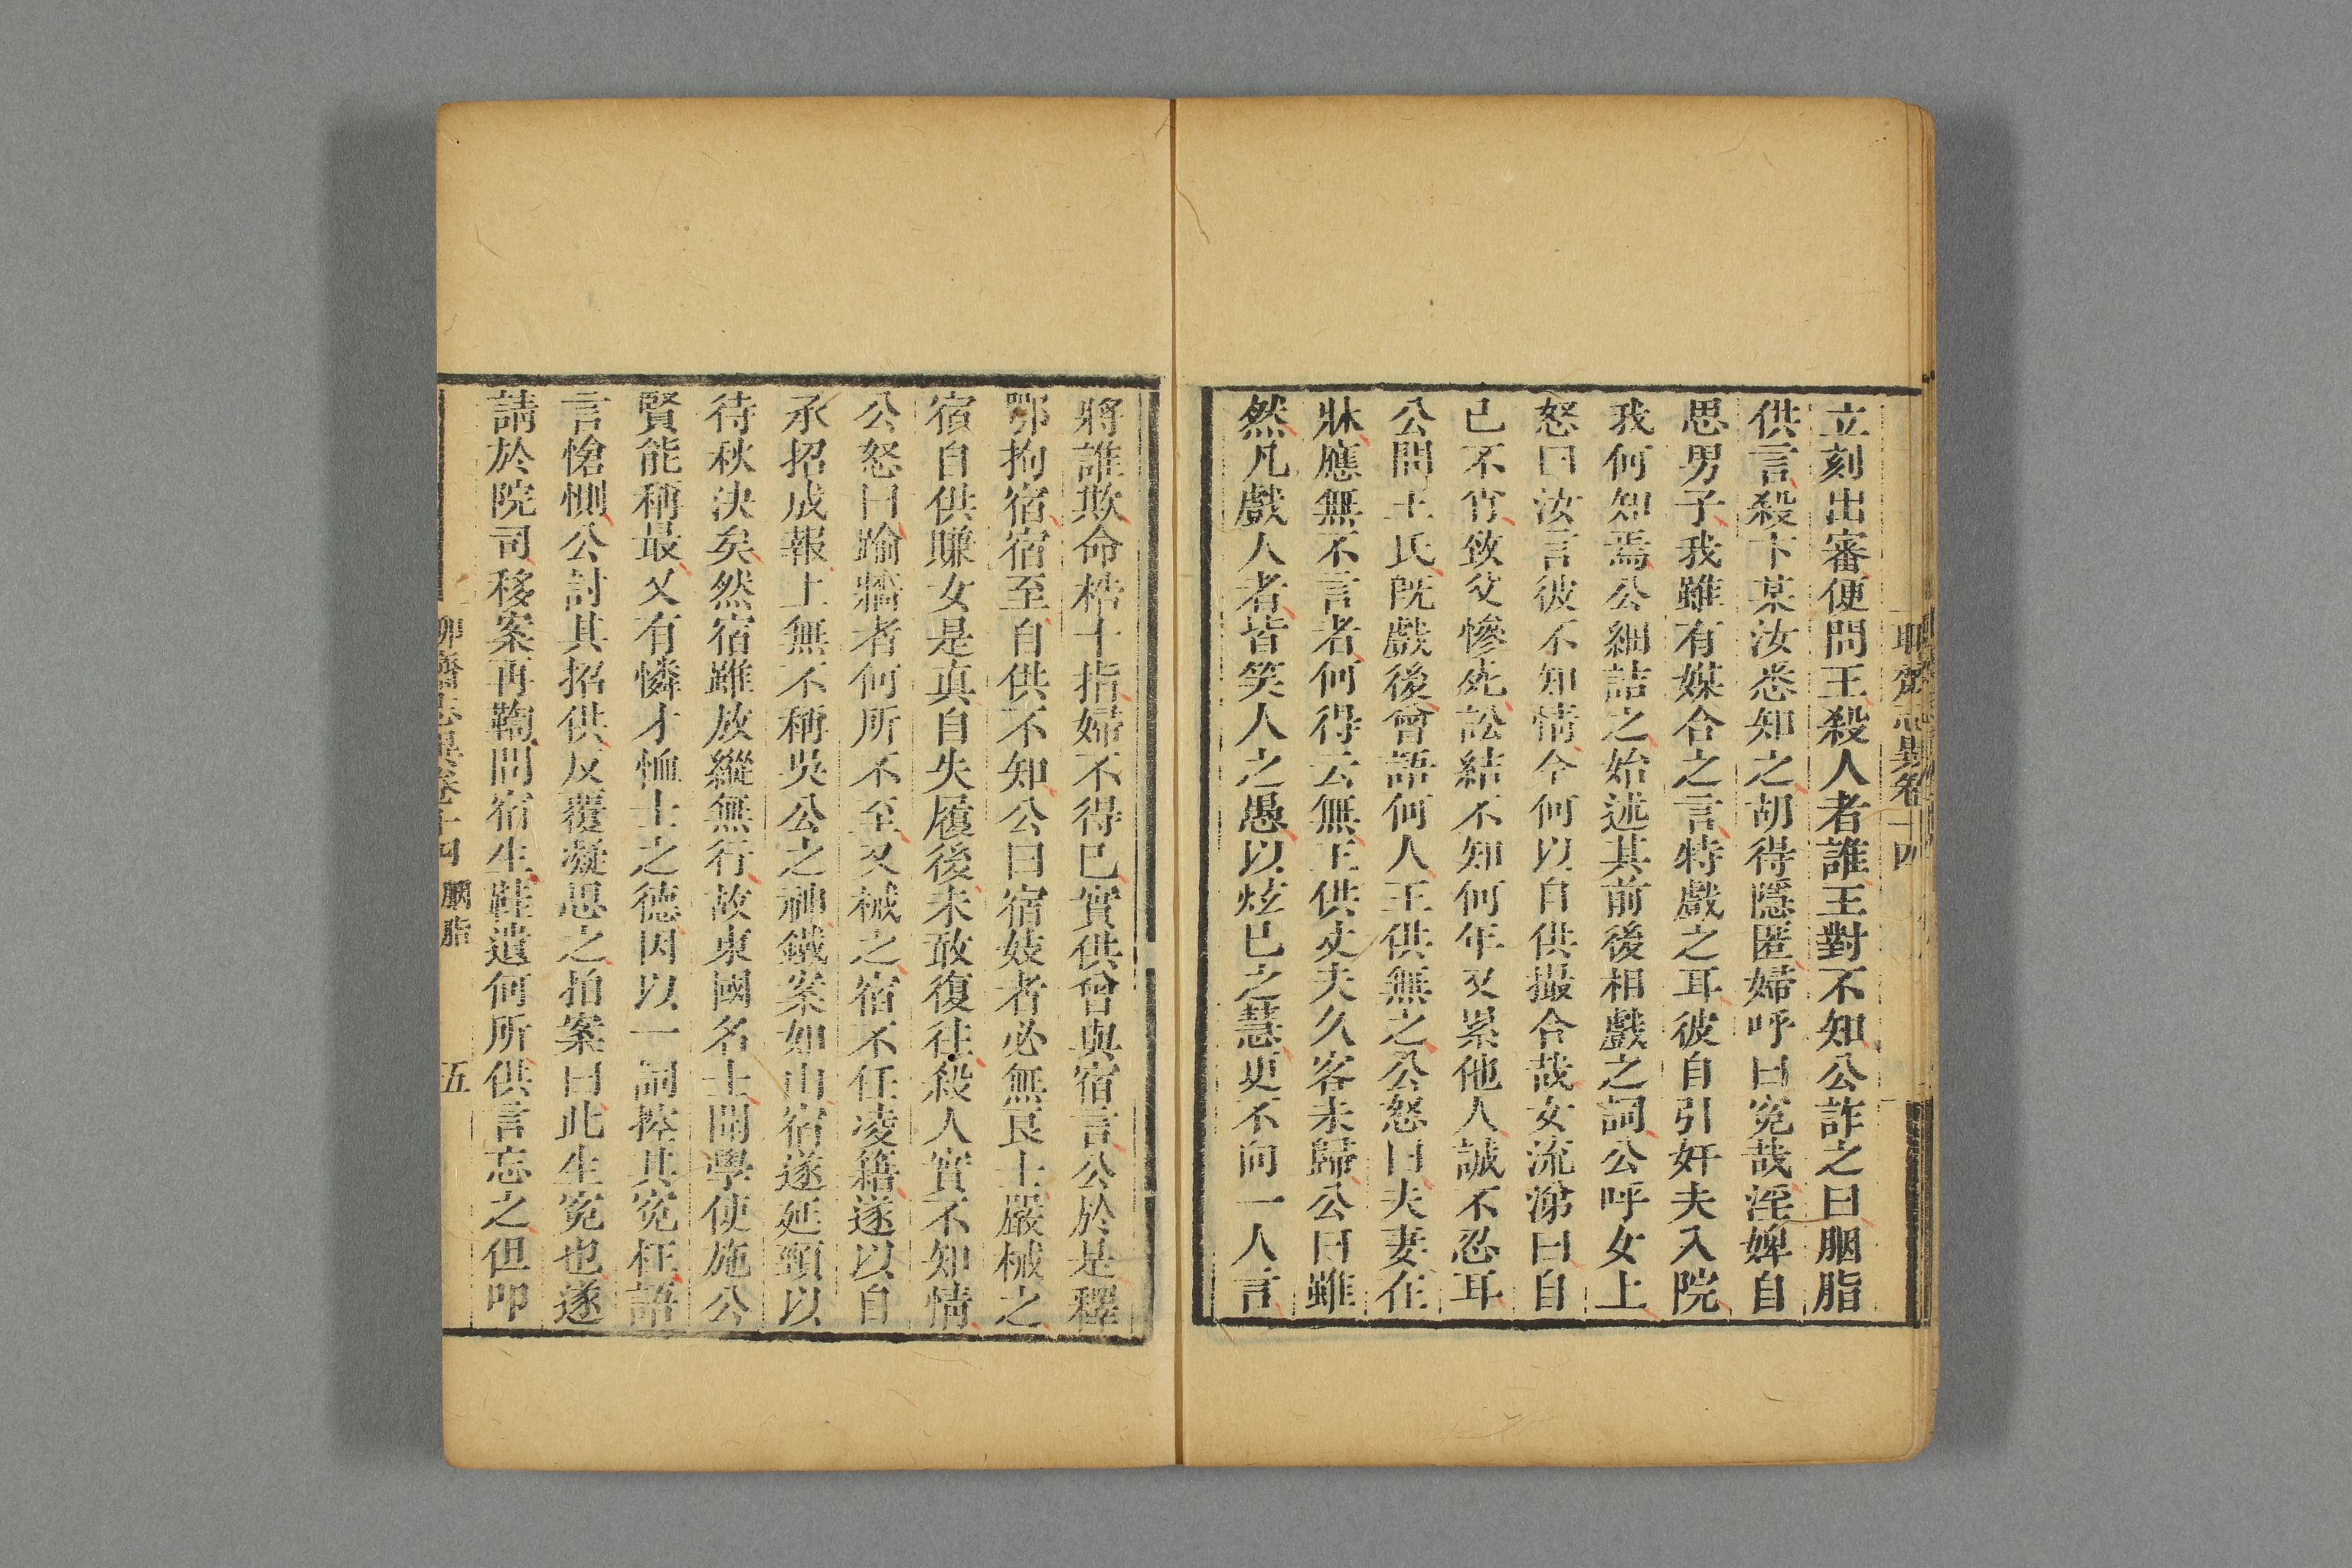 聊齋志異卷十四
立刻出審便問王殺人者誰王對不知公詐之曰胭脂
供言殺卞某汝悉知之胡得隱匿婦呼曰冤哉淫婢自
思男子我雖有媒合之言特戲之耳彼自引奸夫入院
我何知焉公細詰之始述其前後相戲之詞公呼女上
怒曰汝言彼不知情今何以自供撮合哉女流涕曰自
己不肖致父慘死訟結不知何年又累他人誠不忍耳
公問王氏既戲後曾語何人王供無之公怒曰夫妻在
牀應無不言者何得云無王供丈夫久客未歸公曰雖
然凡戲人者皆笑人之愚以炫已之慧更不向一人言
將誰欺命梏十指婦不得已實供曾與宿言公於是釋
鄂拘宿宿至自供不知公曰宿妓者必無良士嚴械之
宿自供賺女是真自失履後未敢復往殺人實不知情
公怒曰踰牆者何所不至又械之宿不任凌籍遂以自
承招成報上無不稱吳公之神鐵案如山宿遂延頸以
待秋決矣然宿雖放縱無行故東國名士聞學使施公
賢能稱最又有憐才恤士之德因以一詞控其冤枉語
言愴惻公討其招供反覆凝思之拍案曰此生冤也遂
請於院司移案再鞫問宿生鞋遺何所供言忘之但叩
聊齋志異卷十四 胭脂 五